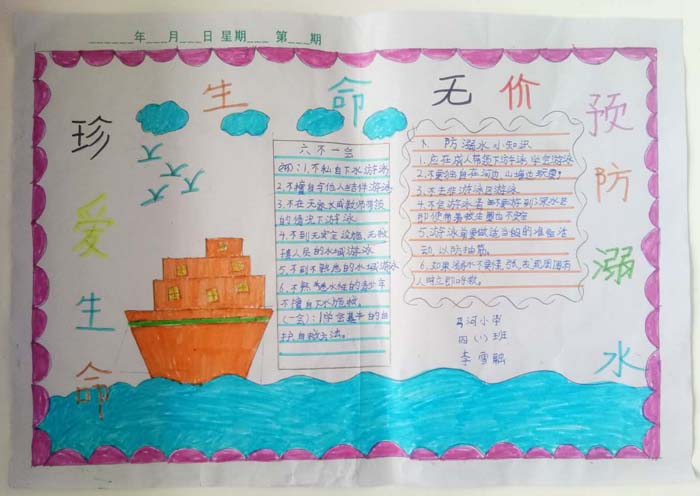 ______年___月___日 星期___ 第___期
生命无价
珍爱生命
预防溺水
六不一会
1.不私自下水游泳
2.不擅自与他人结伴游泳
3.不在无家长或教师带领
的情况下游泳
4.不到无安全设施、无救
援人员的水域游泳
5.不到不熟悉的水域游泳
6.不熟悉水性的青少年
不擅自下水施救。
(一会):学会基本的自
护自救方法。
防溺水小知识
1.应在成人带领下游泳学会游泳
2.不要独自在河边、山塘边玩耍。
3.不去非游泳区游泳
4.不会游泳者,不要游到深水区
即使带着救生圈也不安全
5.游泳前要做适当的准备活
动,以防抽筋。
6.如果溺水不要慌张,发现周围有
人时立即呼救。
河小学
四(1)班
李雪融